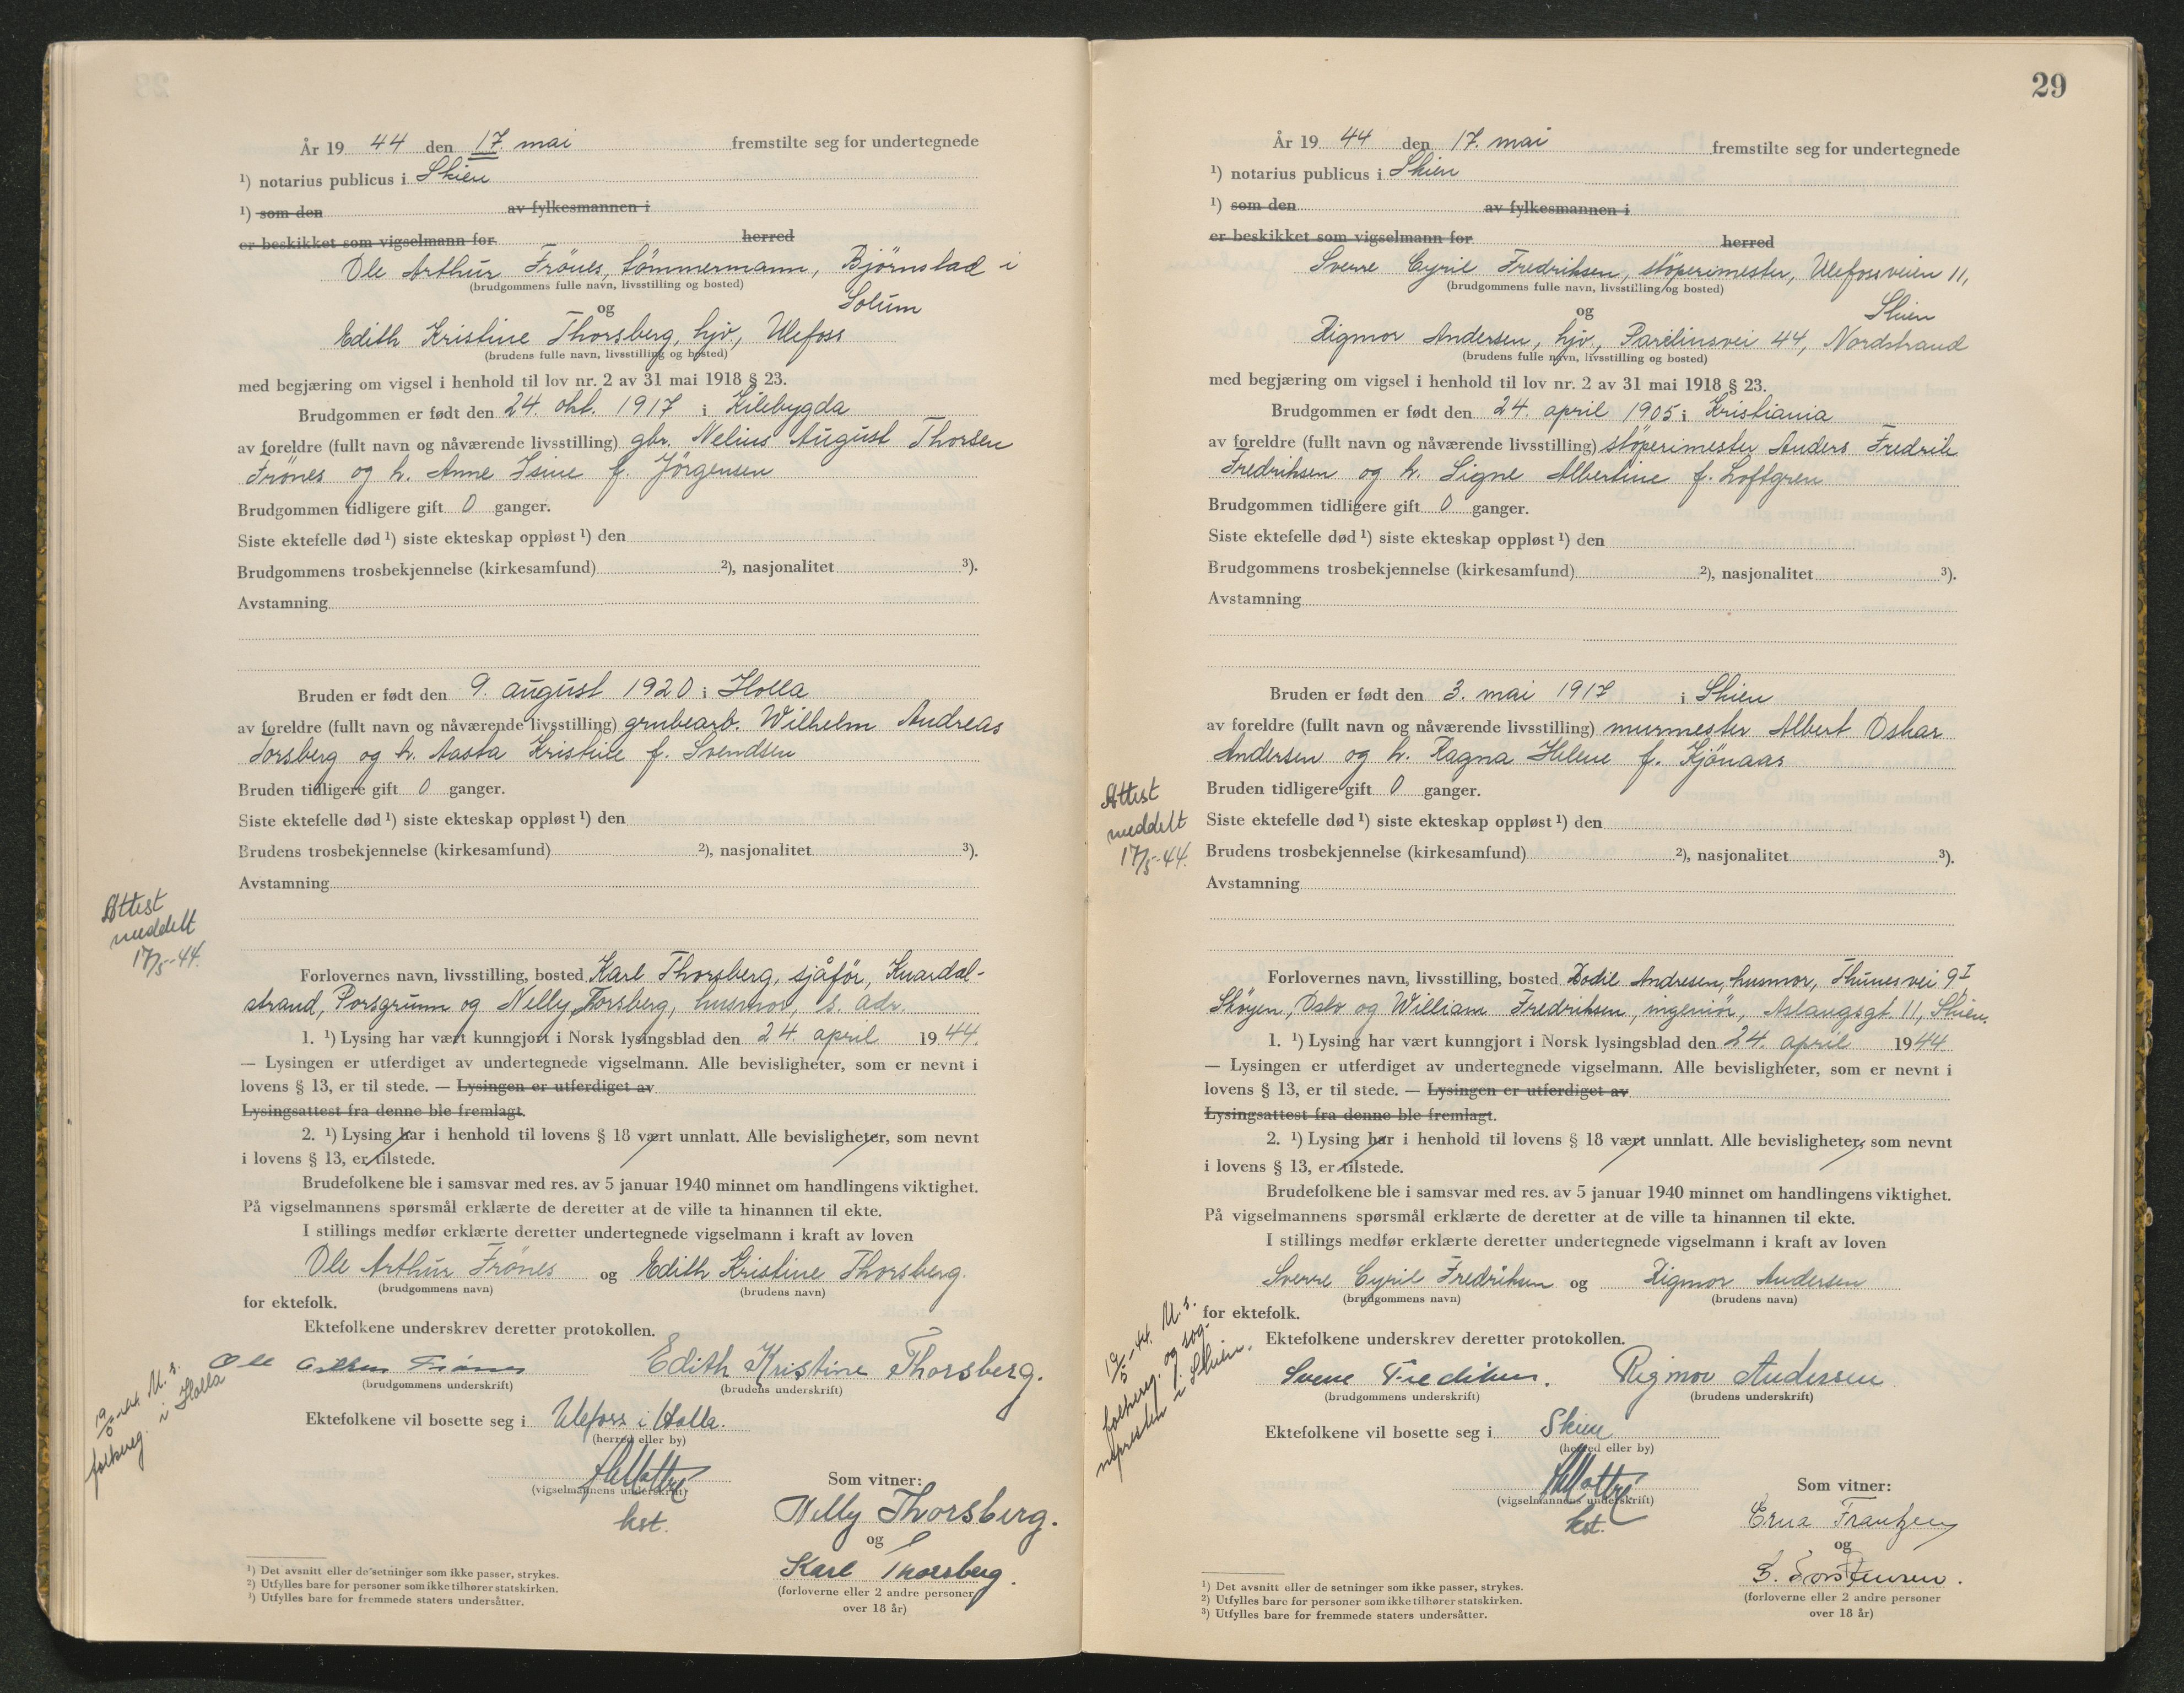 År 19 44 den 17. mai fremstilte seg for undertegnede
¹) notarius publicus i Skien
¹) som den av fylkesmannen i
er beskikket som vigselmann for herred
Ole Arthur Frönes, tömmermann, Björnstad i
(brudgommens fulle navn, livsstilling og bosted)
Solum
og
Edith Kristine Thorsberg, hjv., Ulefoss
(brudens fulle navn, livsstilling og bosted)
med begjæring om vigsel i henhold til lov nr. 2 av 31 mai 1918 § 23.
Brudgommen er født den 24. okt. 1917 i Kilebygda
av foreldre (fullt navn og nåværende livsstilling) gbr. Nelius August Thorsen
Frönes og h. Anne Isine f. Jörgensen
Brudgommen tidligere gift 0 ganger.
Siste ektefelle død ¹) siste ekteskap oppløst ¹) den
Brudgommens trosbekjennelse (kirkesamfund) ²), nasjonalitet ³).
Avstamning
Bruden er født den 9. august 1920 i Holla
av foreldre (fullt navn og nåværende livsstilling) grubearb. Wilhelm Andreas
Torsberg og h. Aasta Kristine f. Svendsen
Bruden tidligere gift 0 ganger.
Siste ektefelle død ¹) siste ekteskap oppløst ¹) den
Brudens trosbekjennelse (kirkesamfund) ²), nasjonalitet ³).
Avstamning
Attest
meddelt
17/5-44.
Forlovernes navn, livsstilling, bosted Karl Thorsberg, sjåför, Knardal-
strand, Porsgrunn og Nelly Torsberg, husmor, s. adr.
1. ¹) Lysing har vært kunngjort i Norsk lysingsblad den 24. april 1944.
— Lysingen er utferdiget av undertegnede vigselmann. Alle bevisligheter, som er nevnt i
lovens § 13, er til stede. — Lysingen er utferdiget av
Lysingsattest fra denne ble fremlagt.
2. ¹) Lysing har i henhold til lovens § 18 vært unnlatt. Alle bevisligheter, som nevnt
i lovens § 13, er tilstede.
Brudefolkene ble i samsvar med res. av 5 januar 1940 minnet om handlingens viktighet.
På vigselmannens spørsmål erklærte de deretter at de ville ta hinannen til ekte.
I stillings medfør erklærte deretter undertegnede vigselmann i kraft av loven
Ole Arthur Frönes og Edith Kristine Thorsberg.
(brudgommens navn) (brudens navn)
for ektefolk.
Ektefolkene underskrev deretter protokollen.
Ole Arthur Frönes Edith Kristine Thorsberg.
(brudgommens underskrift) (brudens underskrift)
19/5-44. M. s.
folkereg. i Holla
Ektefolkene vil bosette seg i Ulefoss i Holla.
(herred eller by)
(vigselmannens underskrift)
kst.
Som vitner:
Nelly Thorsberg.
og
Karl Thorsberg.
(forloverne eller 2 andre personer
over 18 år)
¹) Det avsnitt eller de setninger som ikke passer, strykes.
²) Utfylles bare for personer som ikke tilhører statskirken.
³) Utfylles bare for fremmede staters undersåtter.
29
År 19 44 den 17. mai fremstilte seg for undertegnede
¹) notarius publicus i Skien
¹) som den av fylkesmannen i
er beskikket som vigselmann for herred
Sverre Cyril Fredriksen, stöperimester, Ulefossveien 11,
(brudgommens fulle navn, livsstilling og bosted)
Skien
og
Rigmor Andersen, hjv., Parelinsvei 44, Nordstrand
(brudens fulle navn, livsstilling og bosted)
med begjæring om vigsel i henhold til lov nr. 2 av 31 mai 1918 § 23.
Brudgommen er født den 24. april 1905 i Kristiania
av foreldre (fullt navn og nåværende livsstilling) stöperimester Anders Fredrik
Fredriksen og h. Signe Albertine f. Loftgren
Brudgommen tidligere gift 0 ganger.
Siste ektefelle død ¹) siste ekteskap oppløst ¹) den
Brudgommens trosbekjennelse (kirkesamfund) ²), nasjonalitet ³).
Avstamning
Bruden er født den 3. mai 1917 i Skien
av foreldre (fullt navn og nåværende livsstilling) murmester Albert Oskar
Andersen og h. Ragna Helene f. Kjönaas
Attest
meddelt
17/5-44.
Bruden tidligere gift 0 ganger.
Siste ektefelle død ¹) siste ekteskap oppløst ¹) den
Brudens trosbekjennelse (kirkesamfund) ²), nasjonalitet ³).
Avstamning
Forlovernes navn, livsstilling, bosted Bodil Andresen, husmor, Thunesvei 9 I
Sköyen, Oslo og William Fredriksen, ingeniör, Aslaugsgt. 11, Skien.
1. ¹) Lysing har vært kunngjort i Norsk lysingsblad den 24. april 1944.
— Lysingen er utferdiget av undertegnede vigselmann. Alle bevisligheter, som er nevnt i
lovens § 13, er til stede. — Lysingen er utferdiget av
Lysingsattest fra denne ble fremlagt.
2. ¹) Lysing har i henhold til lovens § 18 vært unnlatt. Alle bevisligheter, som nevnt
i lovens § 13, er tilstede.
Brudefolkene ble i samsvar med res. av 5 januar 1940 minnet om handlingens viktighet.
På vigselmannens spørsmål erklærte de deretter at de ville ta hinannen til ekte.
I stillings medfør erklærte deretter undertegnede vigselmann i kraft av loven
Sverre Cyril Fredriksen og Rigmor Andersen
(brudgommens navn) (brudens navn)
for ektefolk.
Ektefolkene underskrev deretter protokollen.
Sverre Fredriksen. Rigmor Andersen
(brudgommens underskrift) (brudens underskrift)
19/5-44. M. s.
folkereg. og sog-
nepresten i Skien.
Ektefolkene vil bosette seg i Skien
(herred eller by)
(vigselmannens underskrift)
kst.
Som vitner:
Erna Frantzen
og
(forloverne eller 2 andre personer
over 18 år)
¹) Det avsnitt eller de setninger som ikke passer, strykes.
²) Utfylles bare for personer som ikke tilhører statskirken.
³) Utfylles bare for fremmede staters undersåtter.